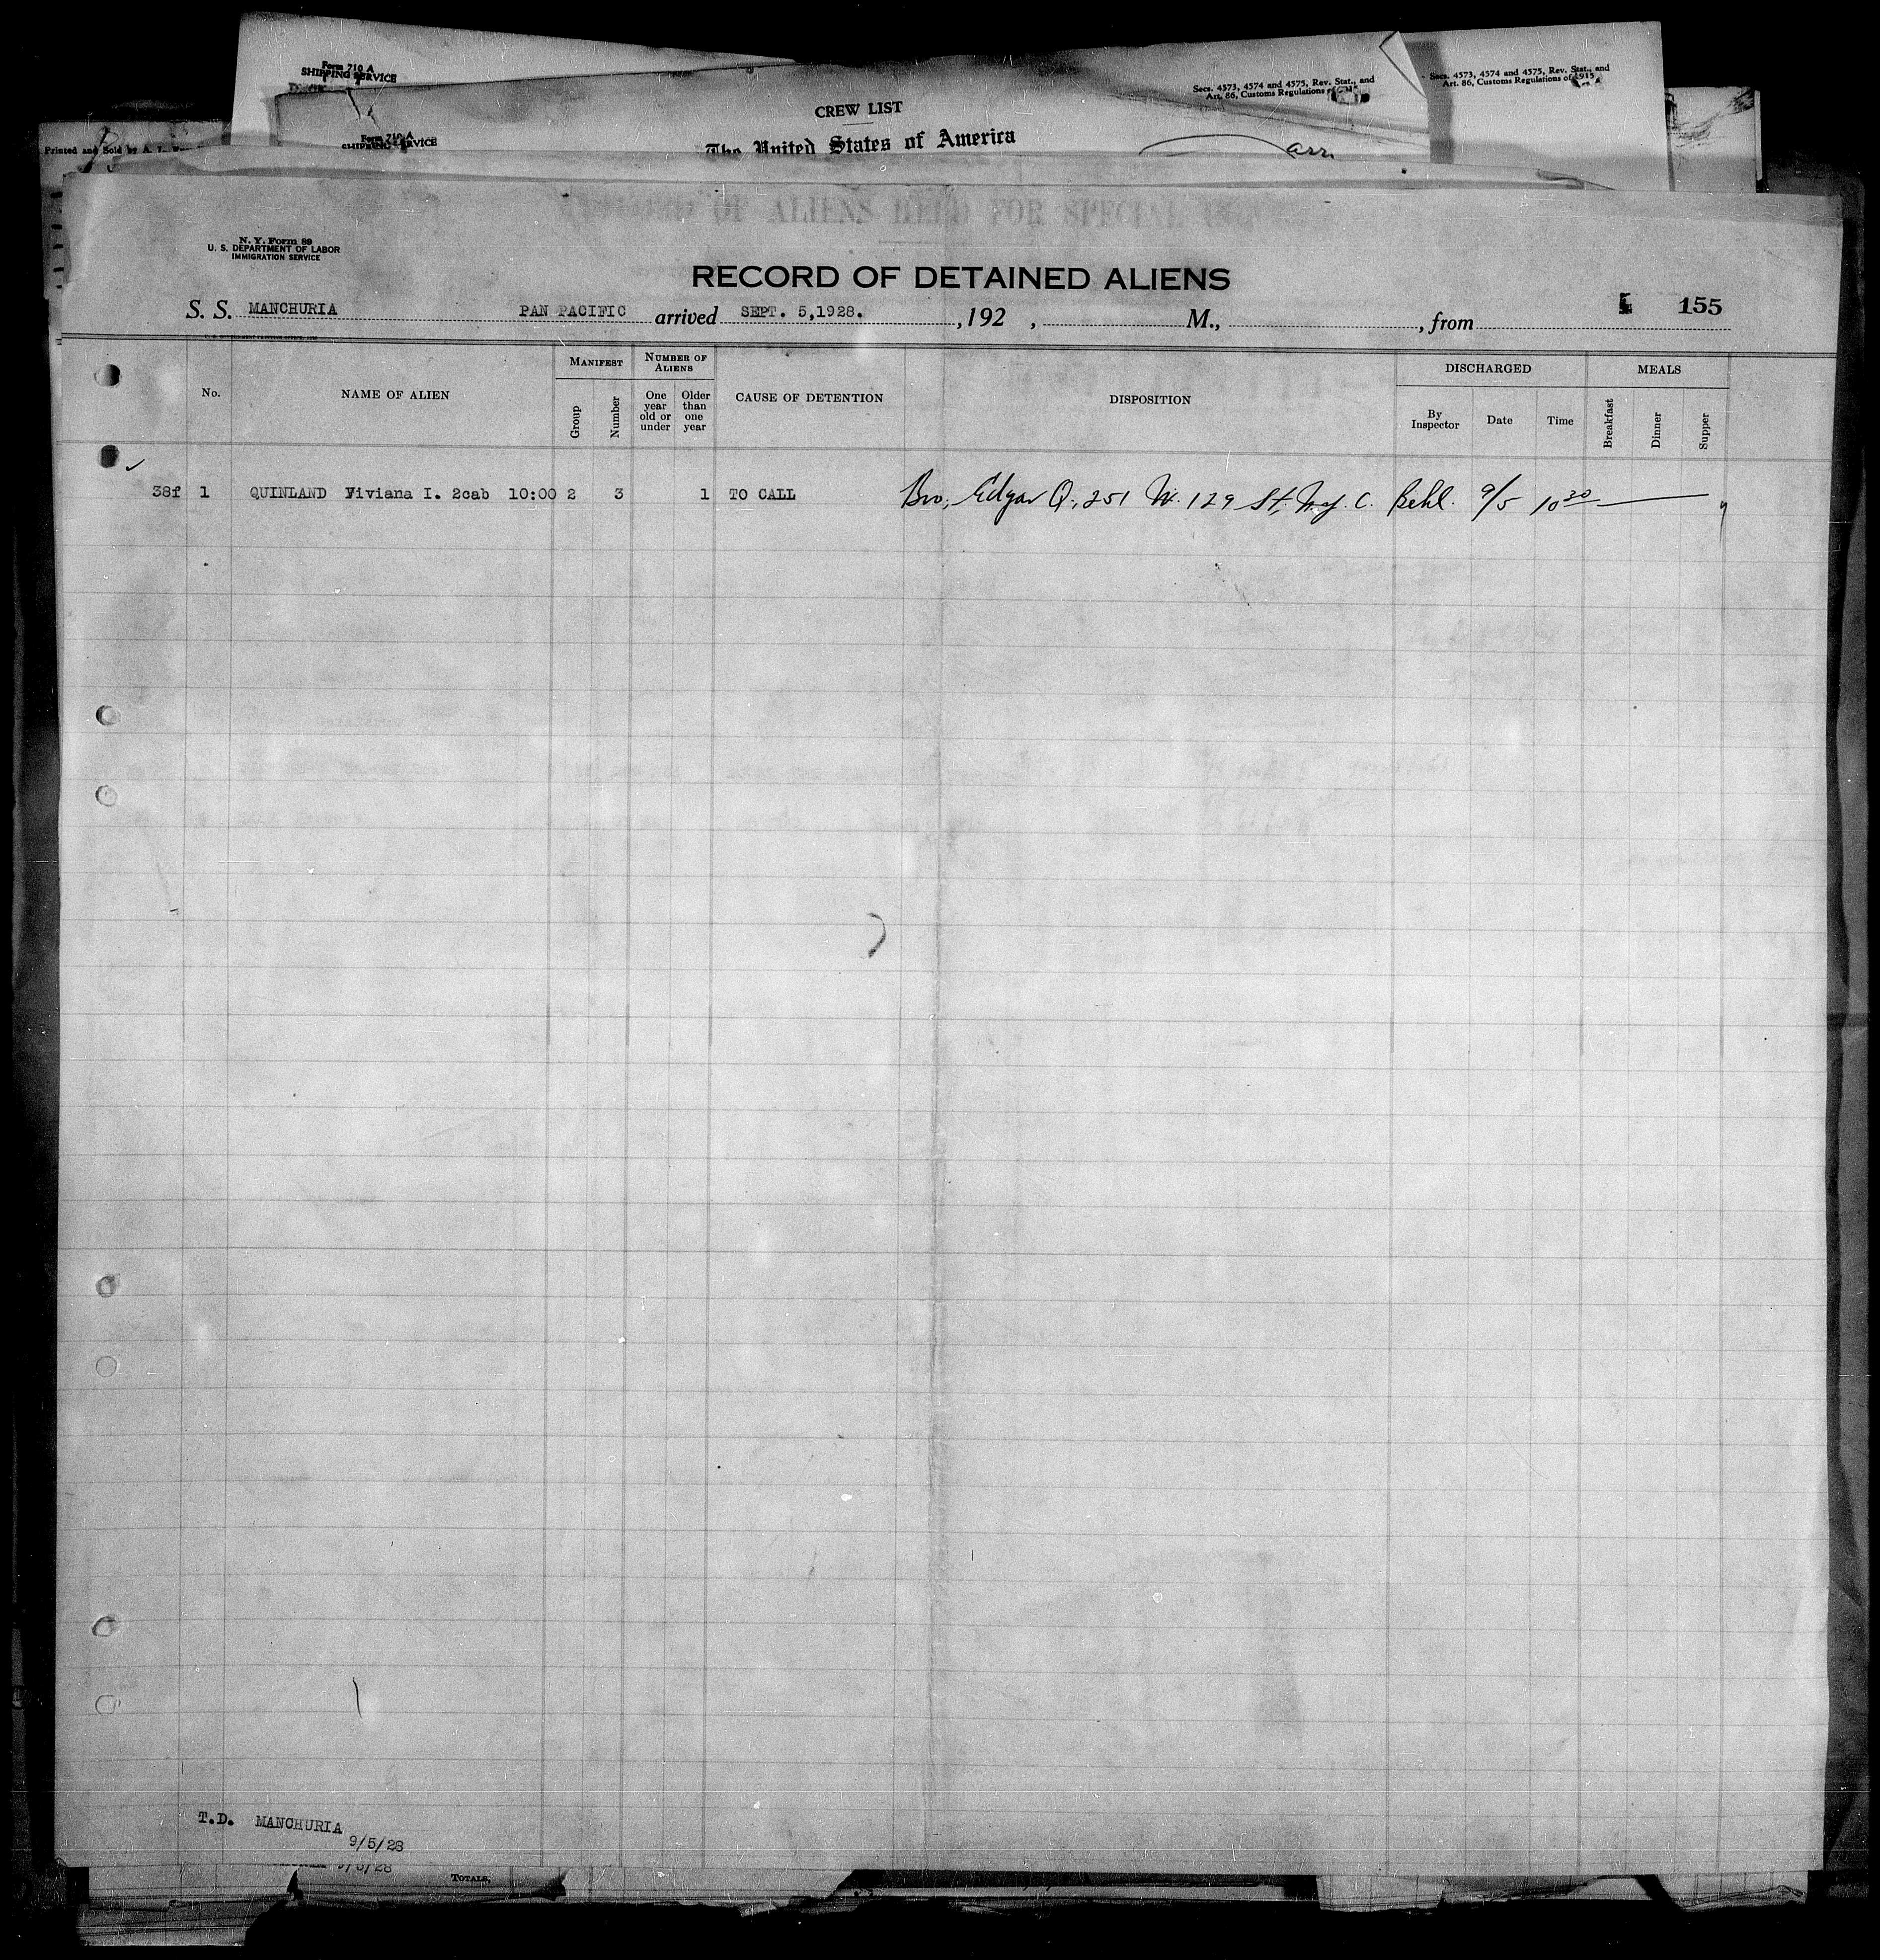 Form 710 A
SHIPPING SERVICE
Secs. 4573, 4574 and 4575, Rev. Stat., and
Art. 86, Customs Regulations of
Secs. 4573, 4574 and 4575, Rev. Stat., and
Art. 86, Customs Regulations of 1915
CREW LIST
Form 710 A
SHIPPING SERVICE
The United States of America
arr.
Printed and Sold by A. L.
RECORD OF ALIENS HELD FOR SPECIAL
N. Y. Form 89
U. S. DEPARTMENT OF LABOR
IMMIGRATION SERVICE
RECORD OF DETAINED ALIENS
S. S. MANCHURIA PAN PACIFIC arrived SEPT. 5,1928. , 192 , M., , from 155
No. NAME OF ALIEN MANIFEST Group Number NUMBER OF ALIENS One year old or under Older than one year CAUSE OF DETENTION DISPOSITION DISCHARGED By Inspector Date Time MEALS Breakfast Dinner Supper
38f 1 QUINLAND Viviana I. 2cab 10:00 2 3 1 TO CALL Bro, Edgar Q, 251 W. 129 St, N.Y. C. Behl. 9/5 10 30
T.D. MANCHURIA
9/5/28
9/5/28
TOTALS,